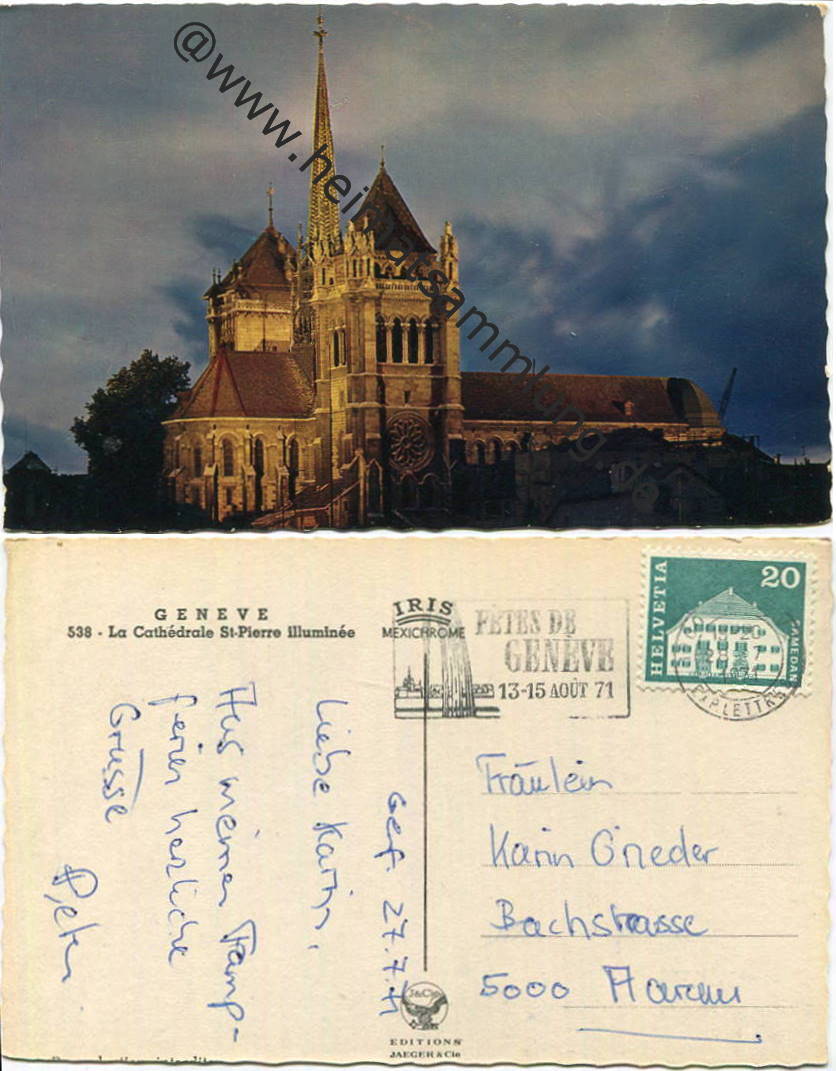 @www.heimatsammlung.de
GENEVE
538 - La Cathédrale St-Pierre illuminée
IRIS
MEXICHROME
FÊTES DE
GENÈVE
13-15 AOÛT 71
HELVETIA
20
SAMEDAN
EXP. LETTRES
Genf, 27.7.71
Liebe Karin,
Aus meinen Tramp-
ferien herzliche
Grüsse
Peter
Fräulein
Karin Grieder
Bachstrasse
5000 Aarau
J&Cie
EDITIONS
JAEGER & Cie